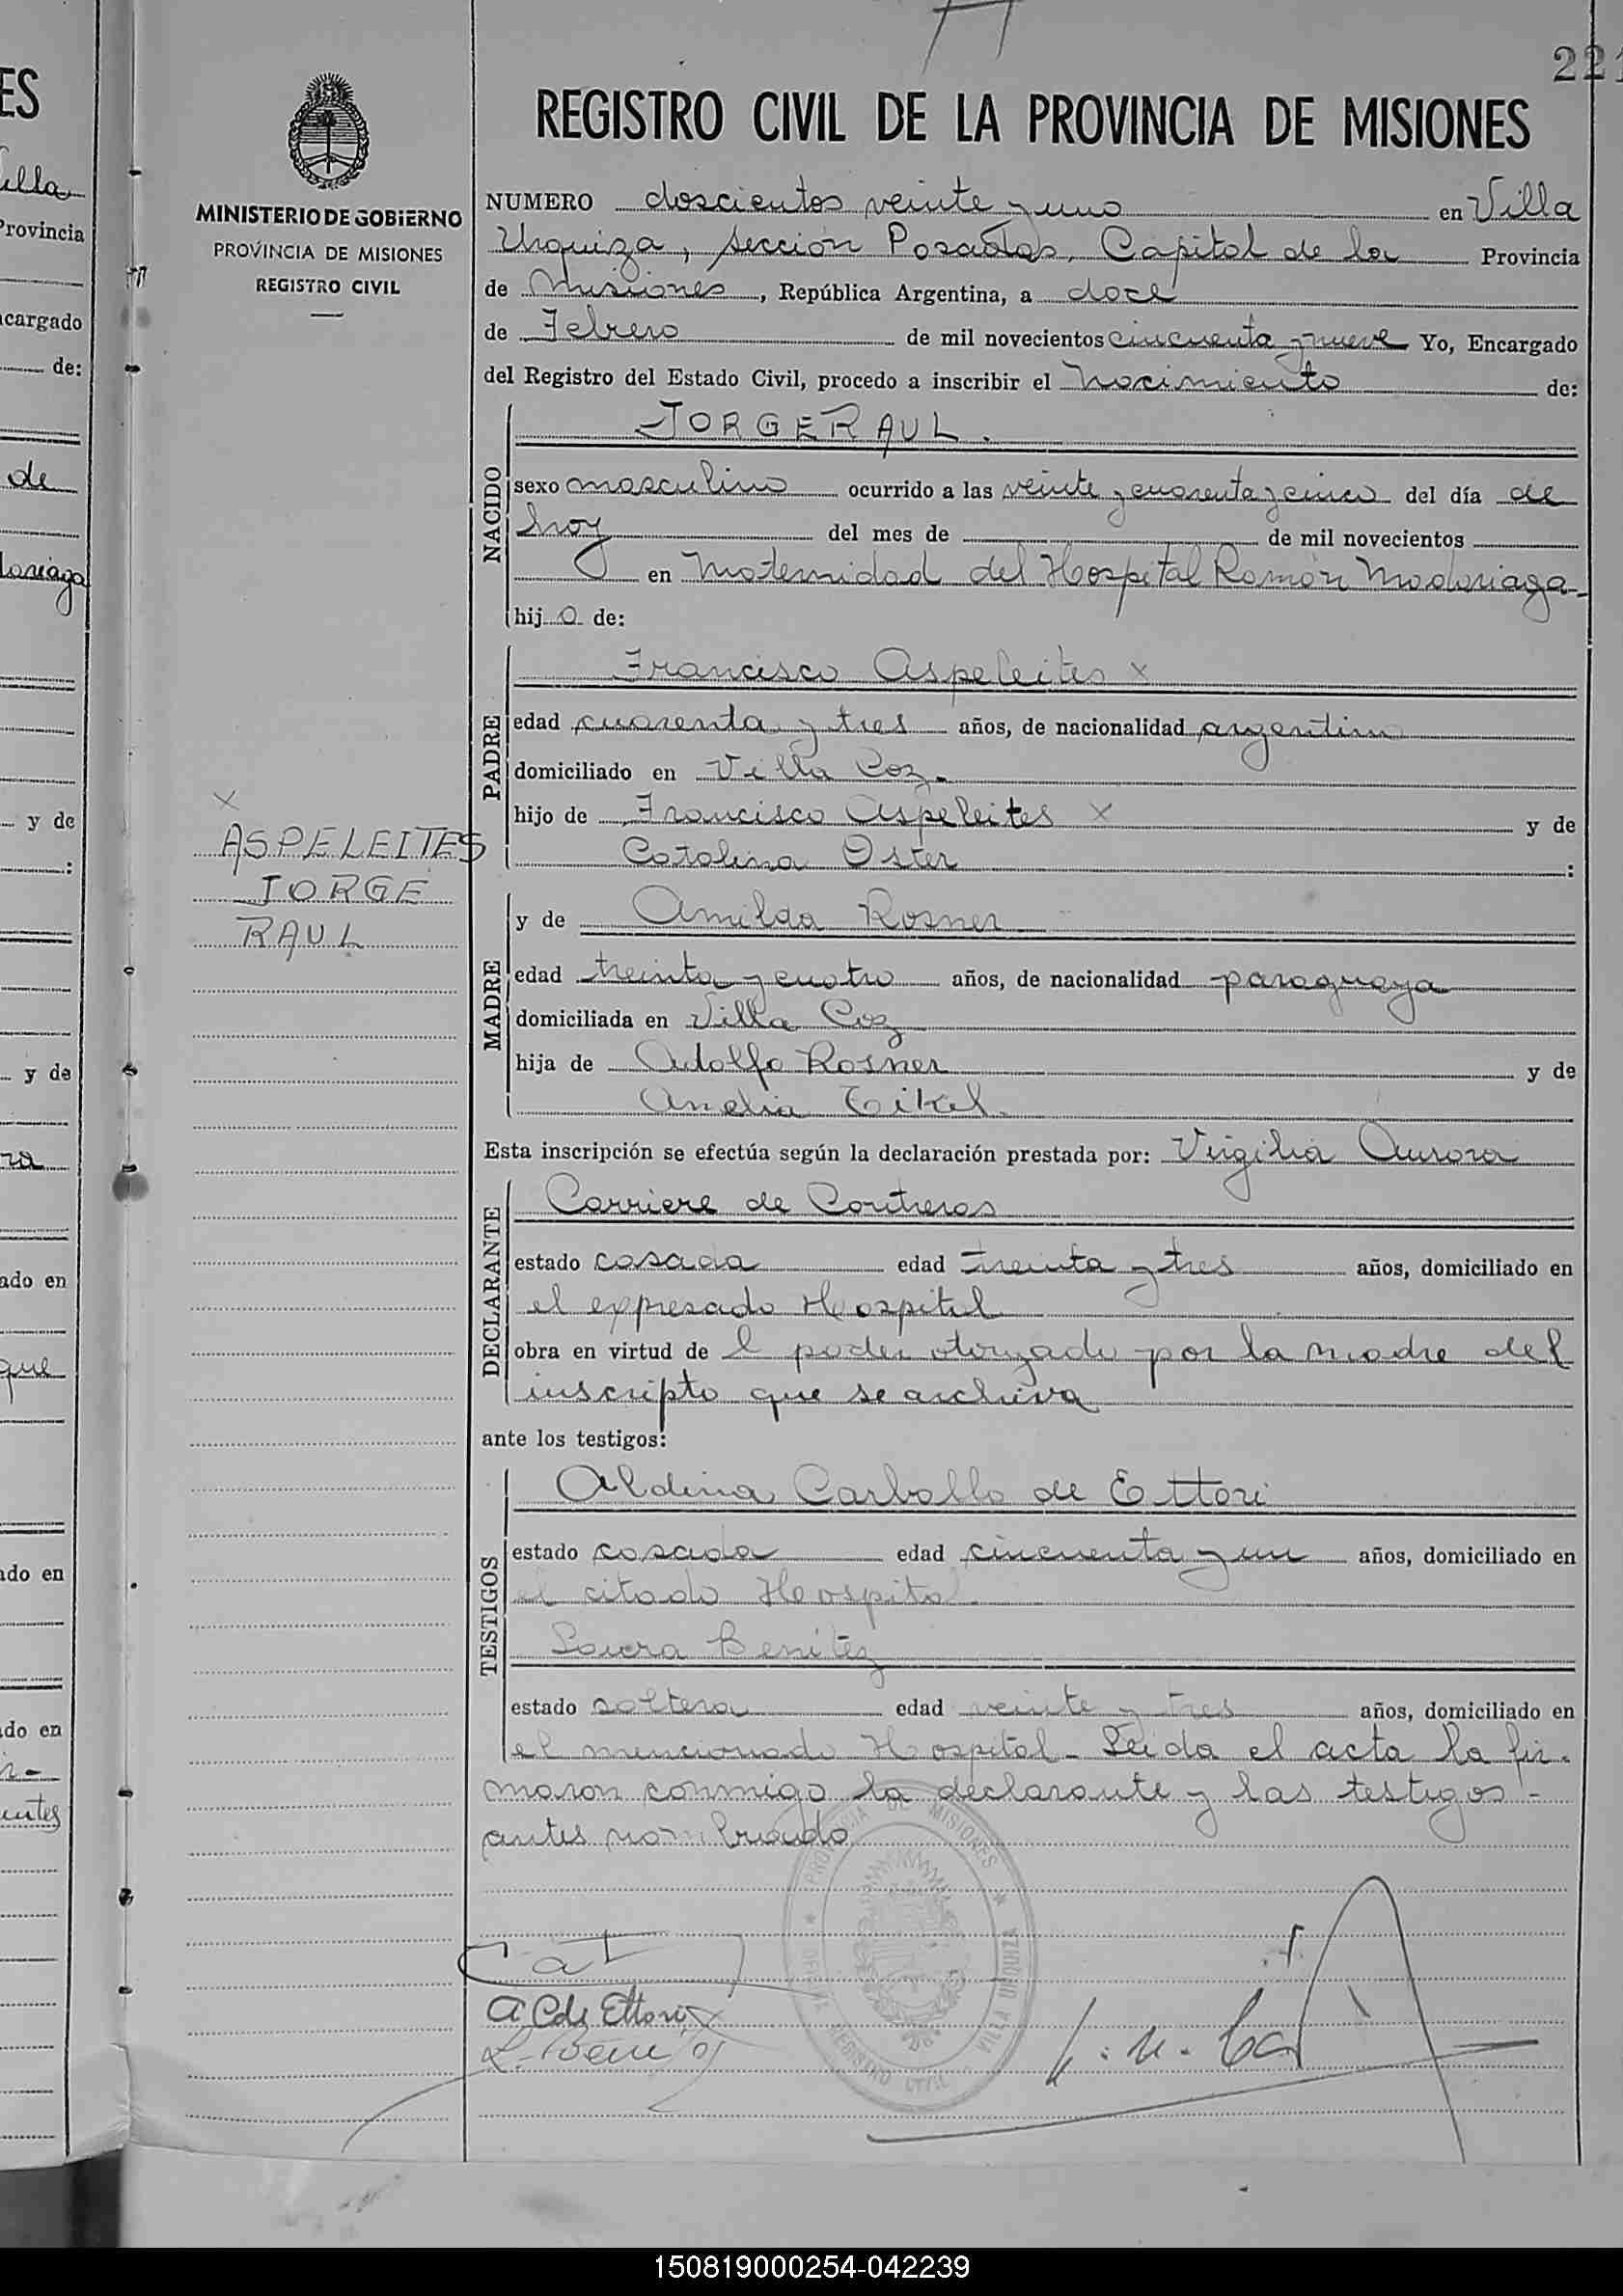 221
REGISTRO CIVIL DE LA PROVINCIA DE MISIONES
MINISTERIO DE GOBIERNO
PROVINCIA DE MISIONES
REGISTRO CIVIL
NUMERO doscientos veinte y uno en Villa
Urquiza, sección Posadas, Capital de la Provincia
de Misiones, República Argentina, a doce
de Febrero de mil novecientos cincuenta y nueve Yo, Encargado
del Registro del Estado Civil, procedo a inscribir el nacimiento de:
NACIDO
JORGE RAUL.
sexo masculino ocurrido a las veinte y cuarenta y cinco del día de
hoy del mes de de mil novecientos
en Maternidad del Hospital Ramón Madariaga
hijo de:
PADRE
Francisco Aspeleites x
edad cuarenta y tres años, de nacionalidad argentino
domiciliado en Villa Coz.
hijo de Francisco Aspeleites x y de
Catalina Oster :
x
ASPELEITES
JORGE
RAUL
MADRE
y de Amilda Rosner
edad treinta y cuatro años, de nacionalidad paraguaya
domiciliada en Villa Coz
hija de Adolfo Rosner y de
Amelia Eikel.
Esta inscripción se efectúa según la declaración prestada por: Virgilia Aurora
DECLARANTE
Carriere de Contreras
estado casada edad treinta y tres años, domiciliado en
el expresado Hospital
obra en virtud de l poder otorgado por la madre del
inscripto que se archiva
ante los testigos:
TESTIGOS
Aldina Carballo de Ettori
estado casada edad cincuenta y un años, domiciliado en
el citado Hospital
Laura Benítez
estado soltera edad veinte y tres años, domiciliado en
el mencionado Hospital - Leida el acta la fir-
maron conmigo la declarante y las testigos -
antes nombrado
PROVINCIA DE MISIONES
VILLA URQUIZA
OFICINA REGISTRO CIVIL
A C de Ettori
L. Benítez
150819000254-042239